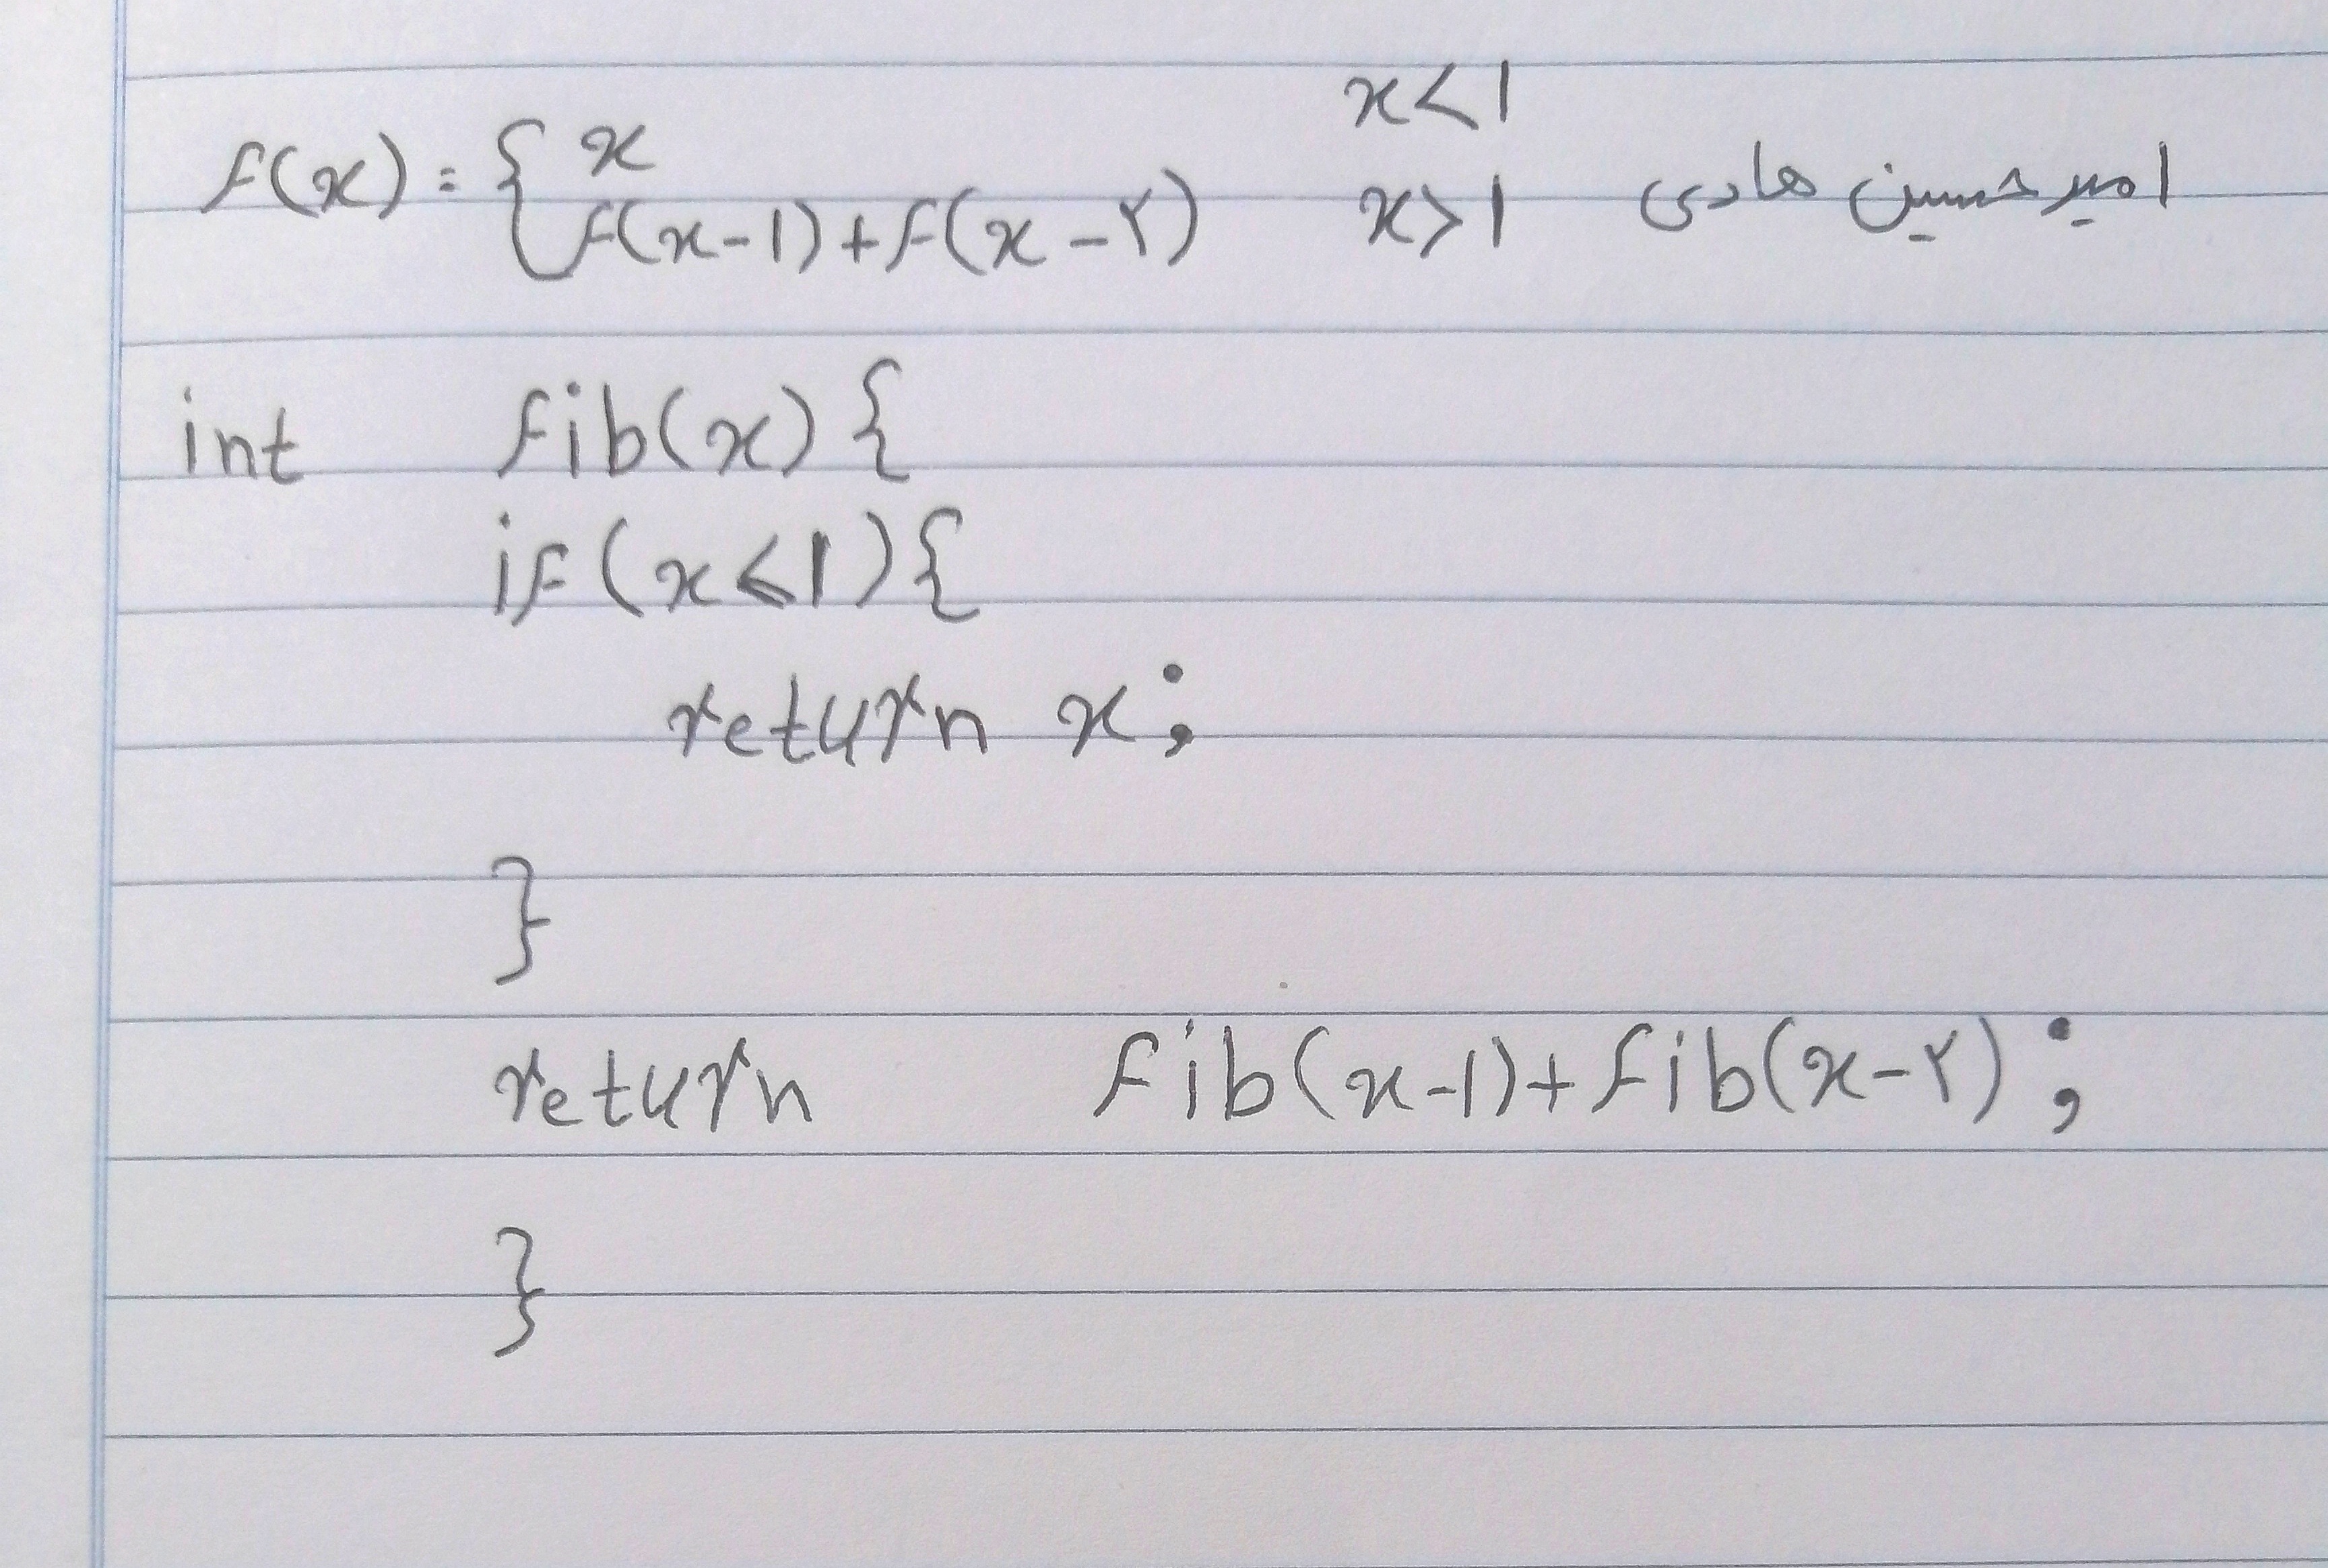 f(x) = { x x<1
f(x-1)+f(x-۲) x>1 امیرحسین هادی
int fib(x) {
if (x⩽1) {
return x;
}
return fib(x-1)+fib(x-۲);
}